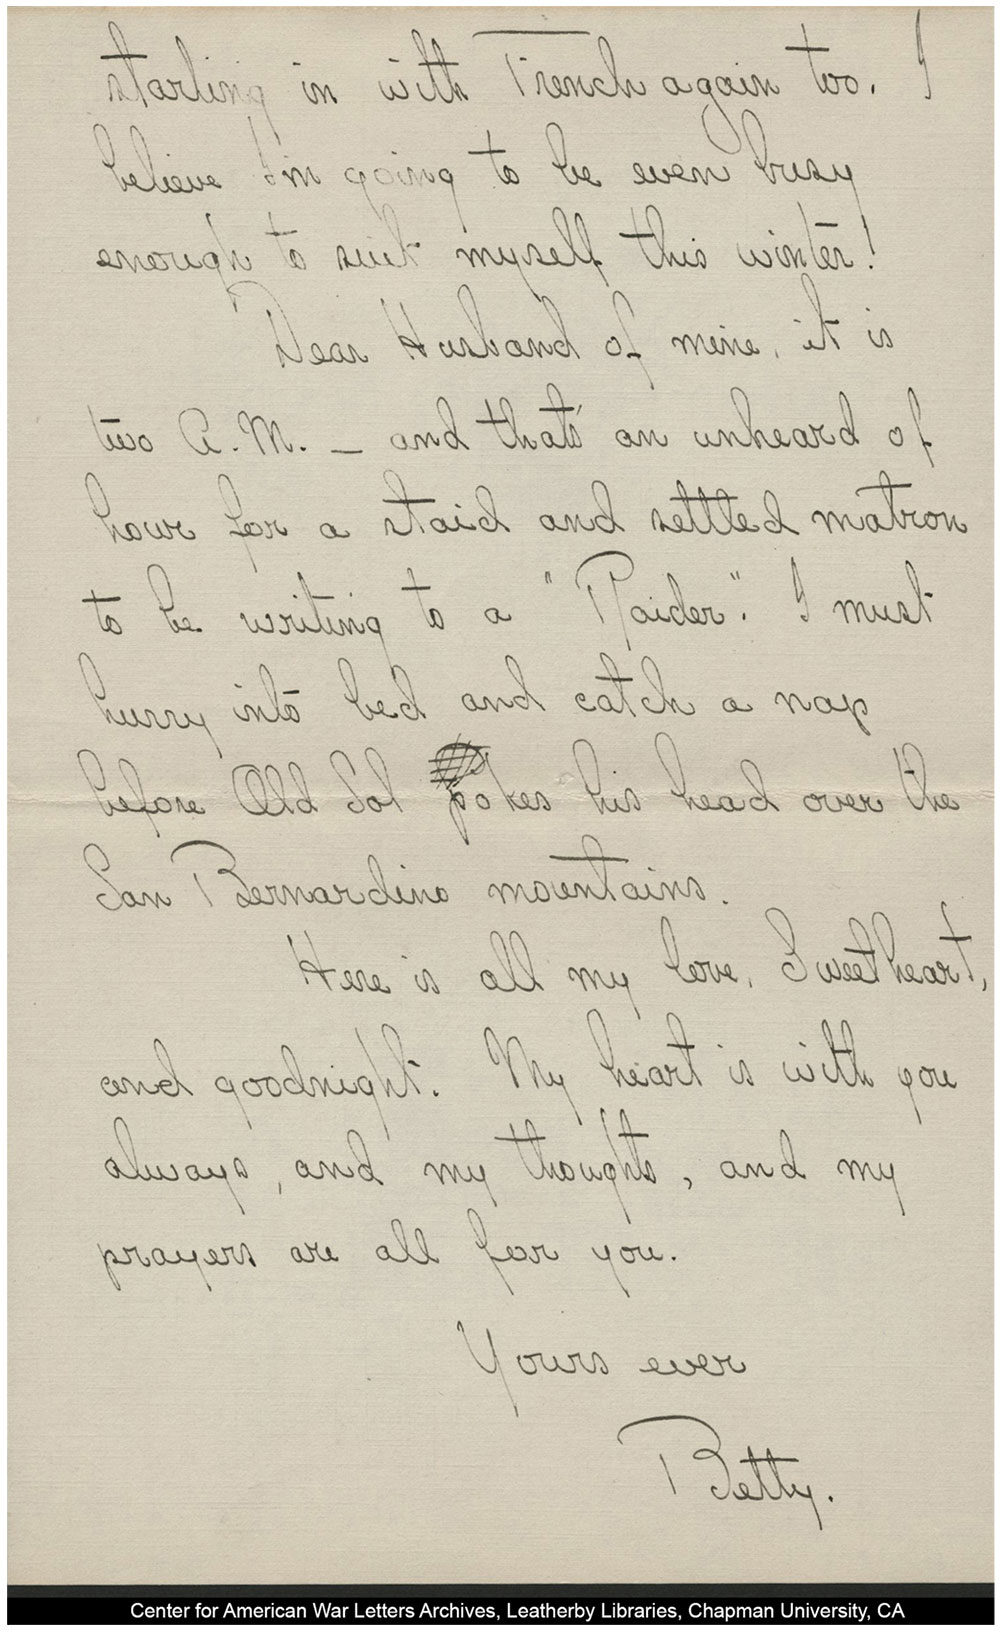 starting in with French again too. I
believe I'm going to be even busy
enough to suit myself this winter!
Dear Husband of mine, it is
two A.M. — and that's an unheard of
hour for a staid and settled matron
to be writing to a "Raider". I must
hurry into bed and catch a nap
before Old Sol pokes his head over the
San Bernardino mountains.
Here is all my love, Sweetheart,
and goodnight. My heart is with you
always, and my thoughts, and my
prayers are all for you.
Yours ever
Betty.
Center for American War Letters Archives, Leatherby Libraries, Chapman University, CA